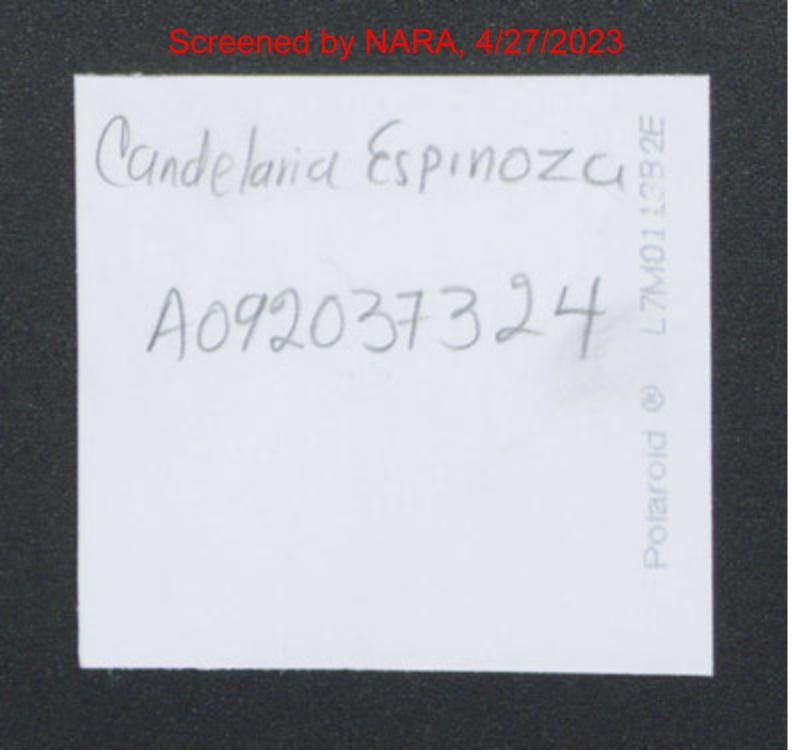 Screened by NARA, 4/27/2023
Candelaria Espinoza
A092037324
Polaroid ® L7M011382E